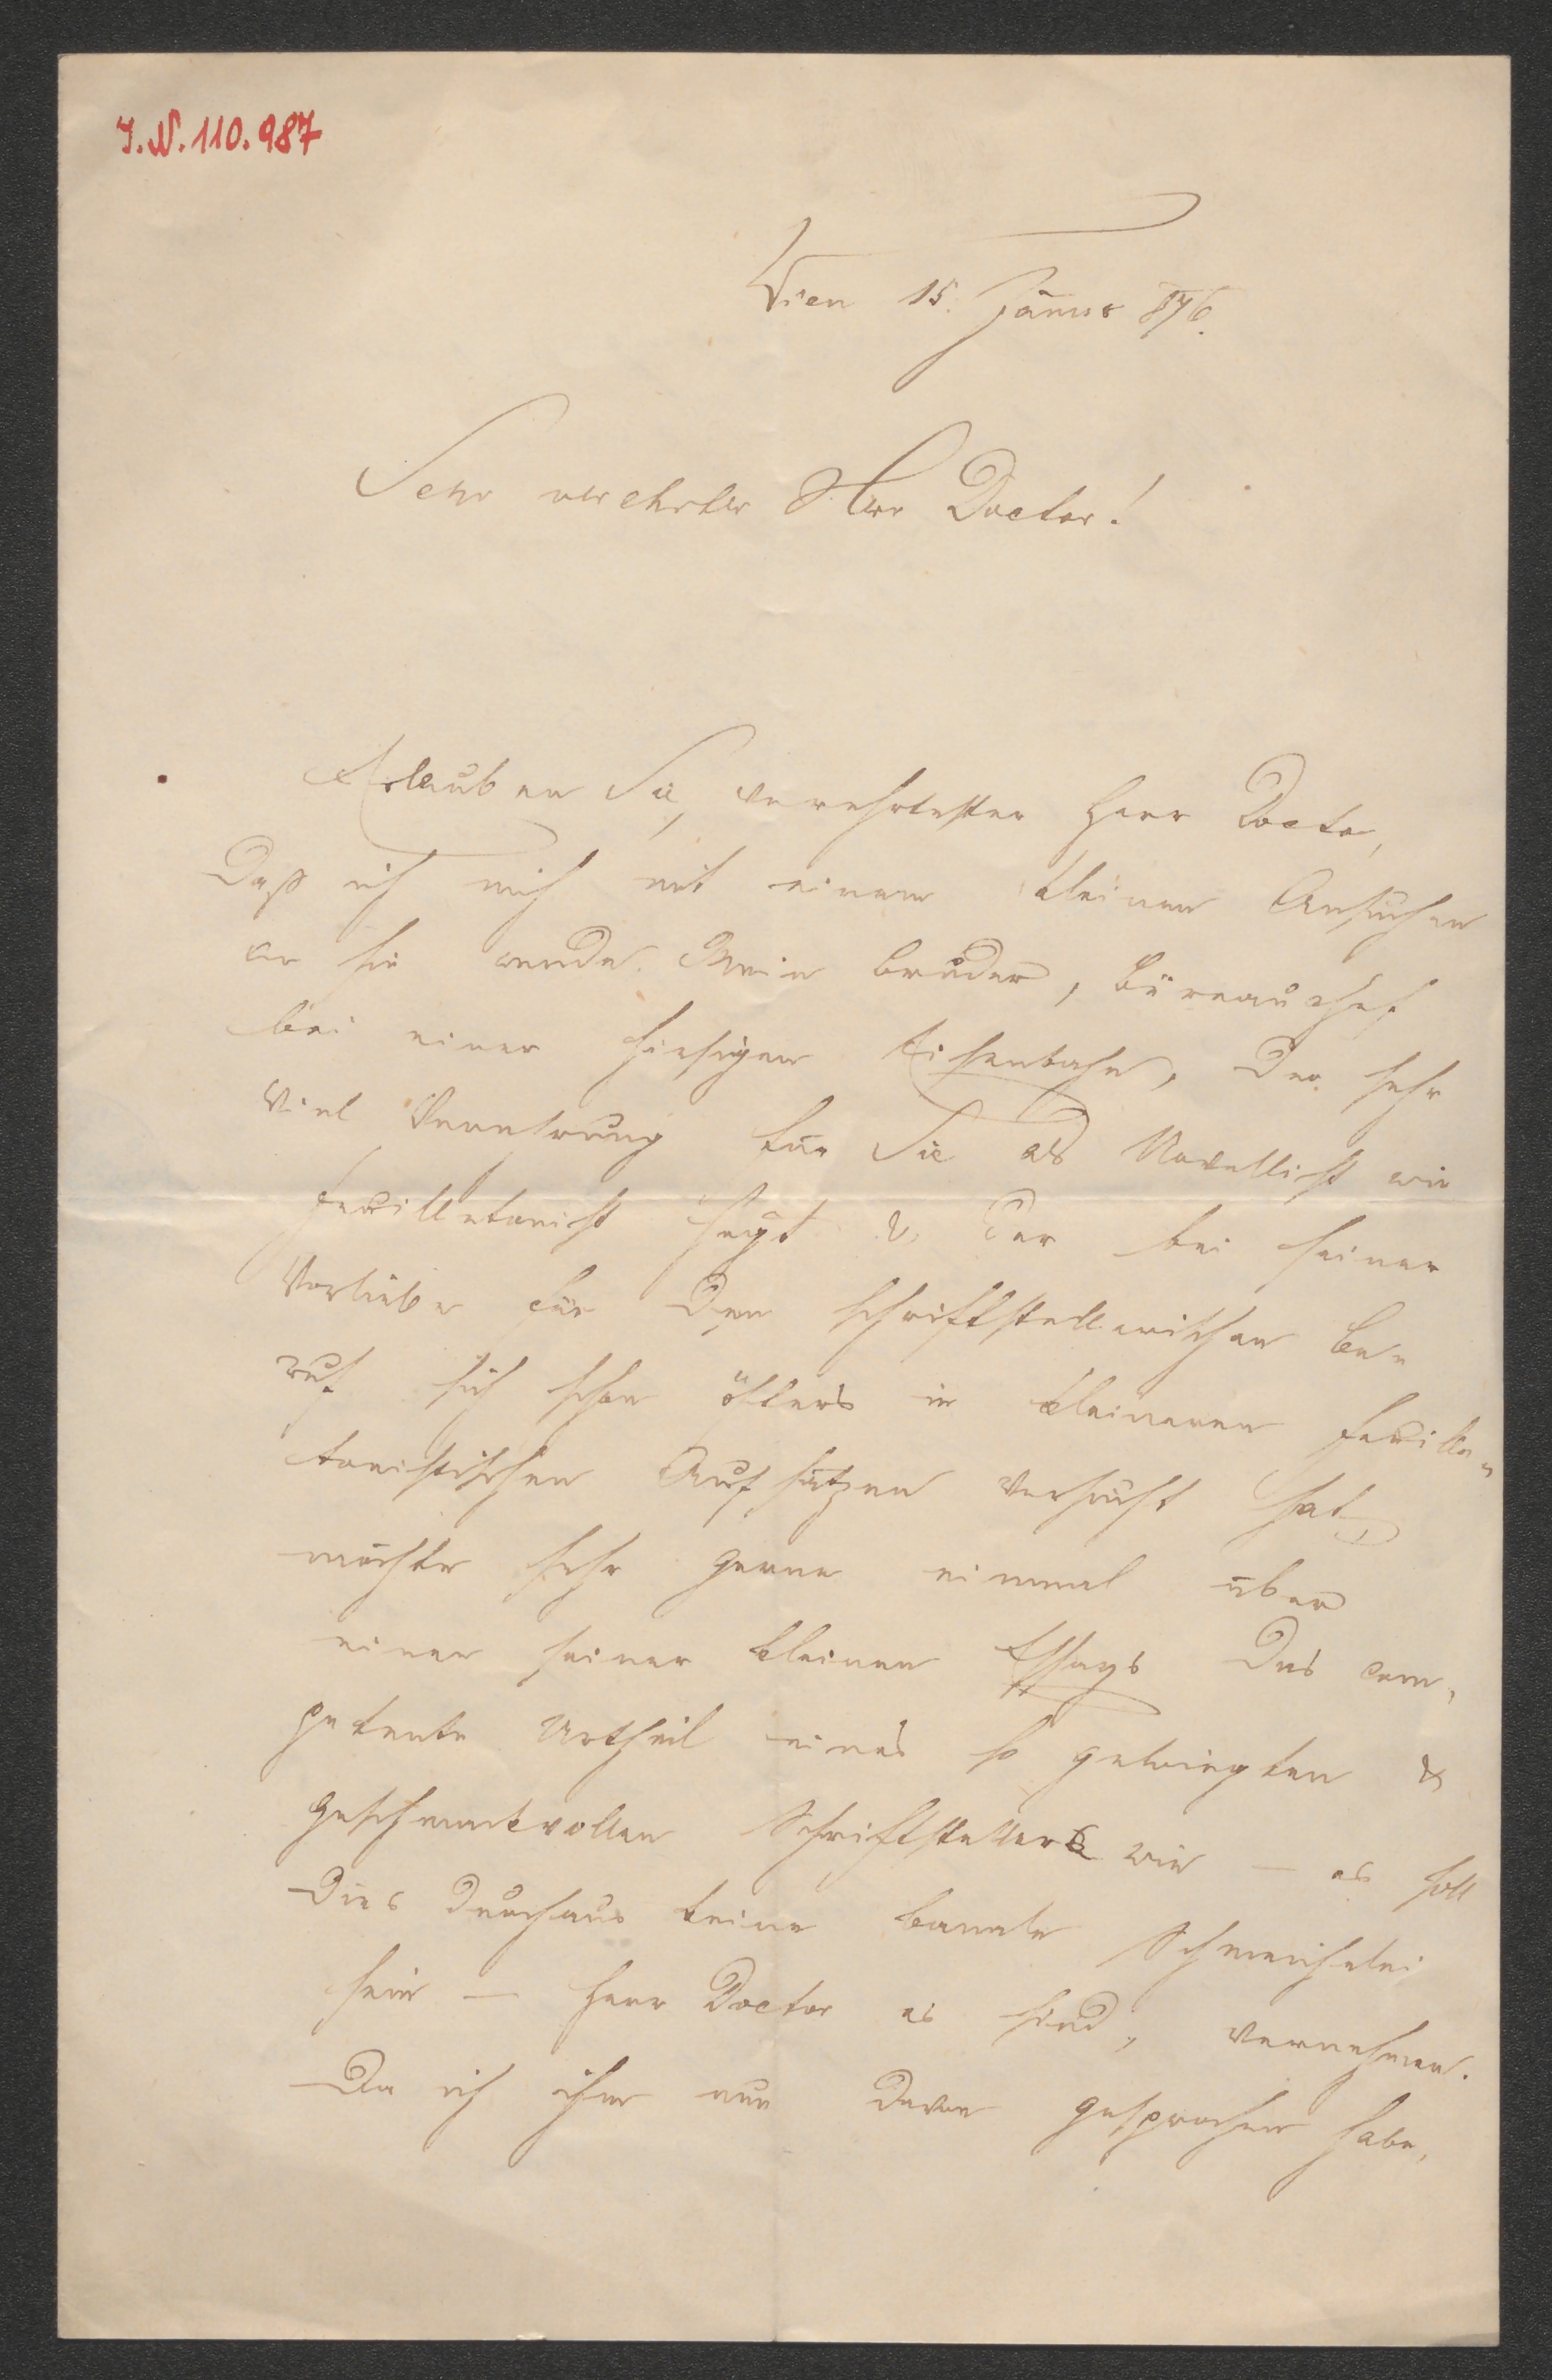 I.N. 110.987
Wien 15. Jänner 876.
Sehr verehrter Herr Doctor!
Erlauben Sie, verehrtester Herr Doctor,
daß ich mich mit einem kleinen Ansuchen
an Sie wende. Mein Bruder, Büreauchef
bei einer hiesigen Eisenbahn, der sehr
viel Verehrung für Sie als Novellist wie
Feuilletonist hegt u. der bei seiner
Vorliebe für den schriftstellerischen Be-
ruf sich schon öfters in kleineren feuille-
tonistischen Aufsätzen versucht hat,
möchte sehr gerne einmal über
einen seiner kleinen Essays das com-
petente Urtheil eines so gewiegten &
geschmackvollen Schriftstellers wie – es soll
dies durchaus keine banale Schmeichelei
sein – Herr Doctor es sind, vernehmen.
Da ich ihm nun davon gesprochen habe,